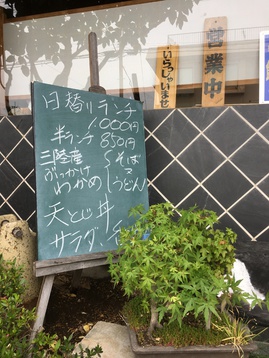 日替りランチ
1,000円
半ランチ 850円
三陸産
ぶっかけ
わかめ
そば
又
うどん
天とじ丼
サラダ・
いらっしゃいませ
営業中